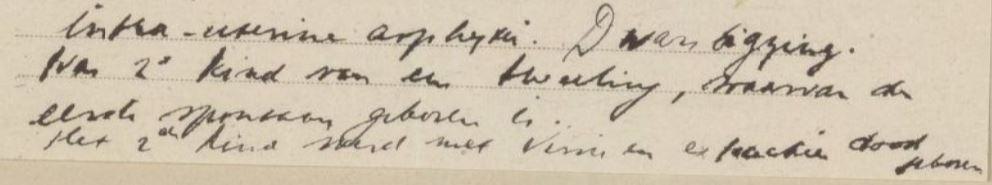 Intra-uterine asphyxie. Dwarsligging.
Was 2e kind van een tweeling, waarvan de
eerste spontaan geboren is.
Het 2de kind werd met versie en extractie dood geboren